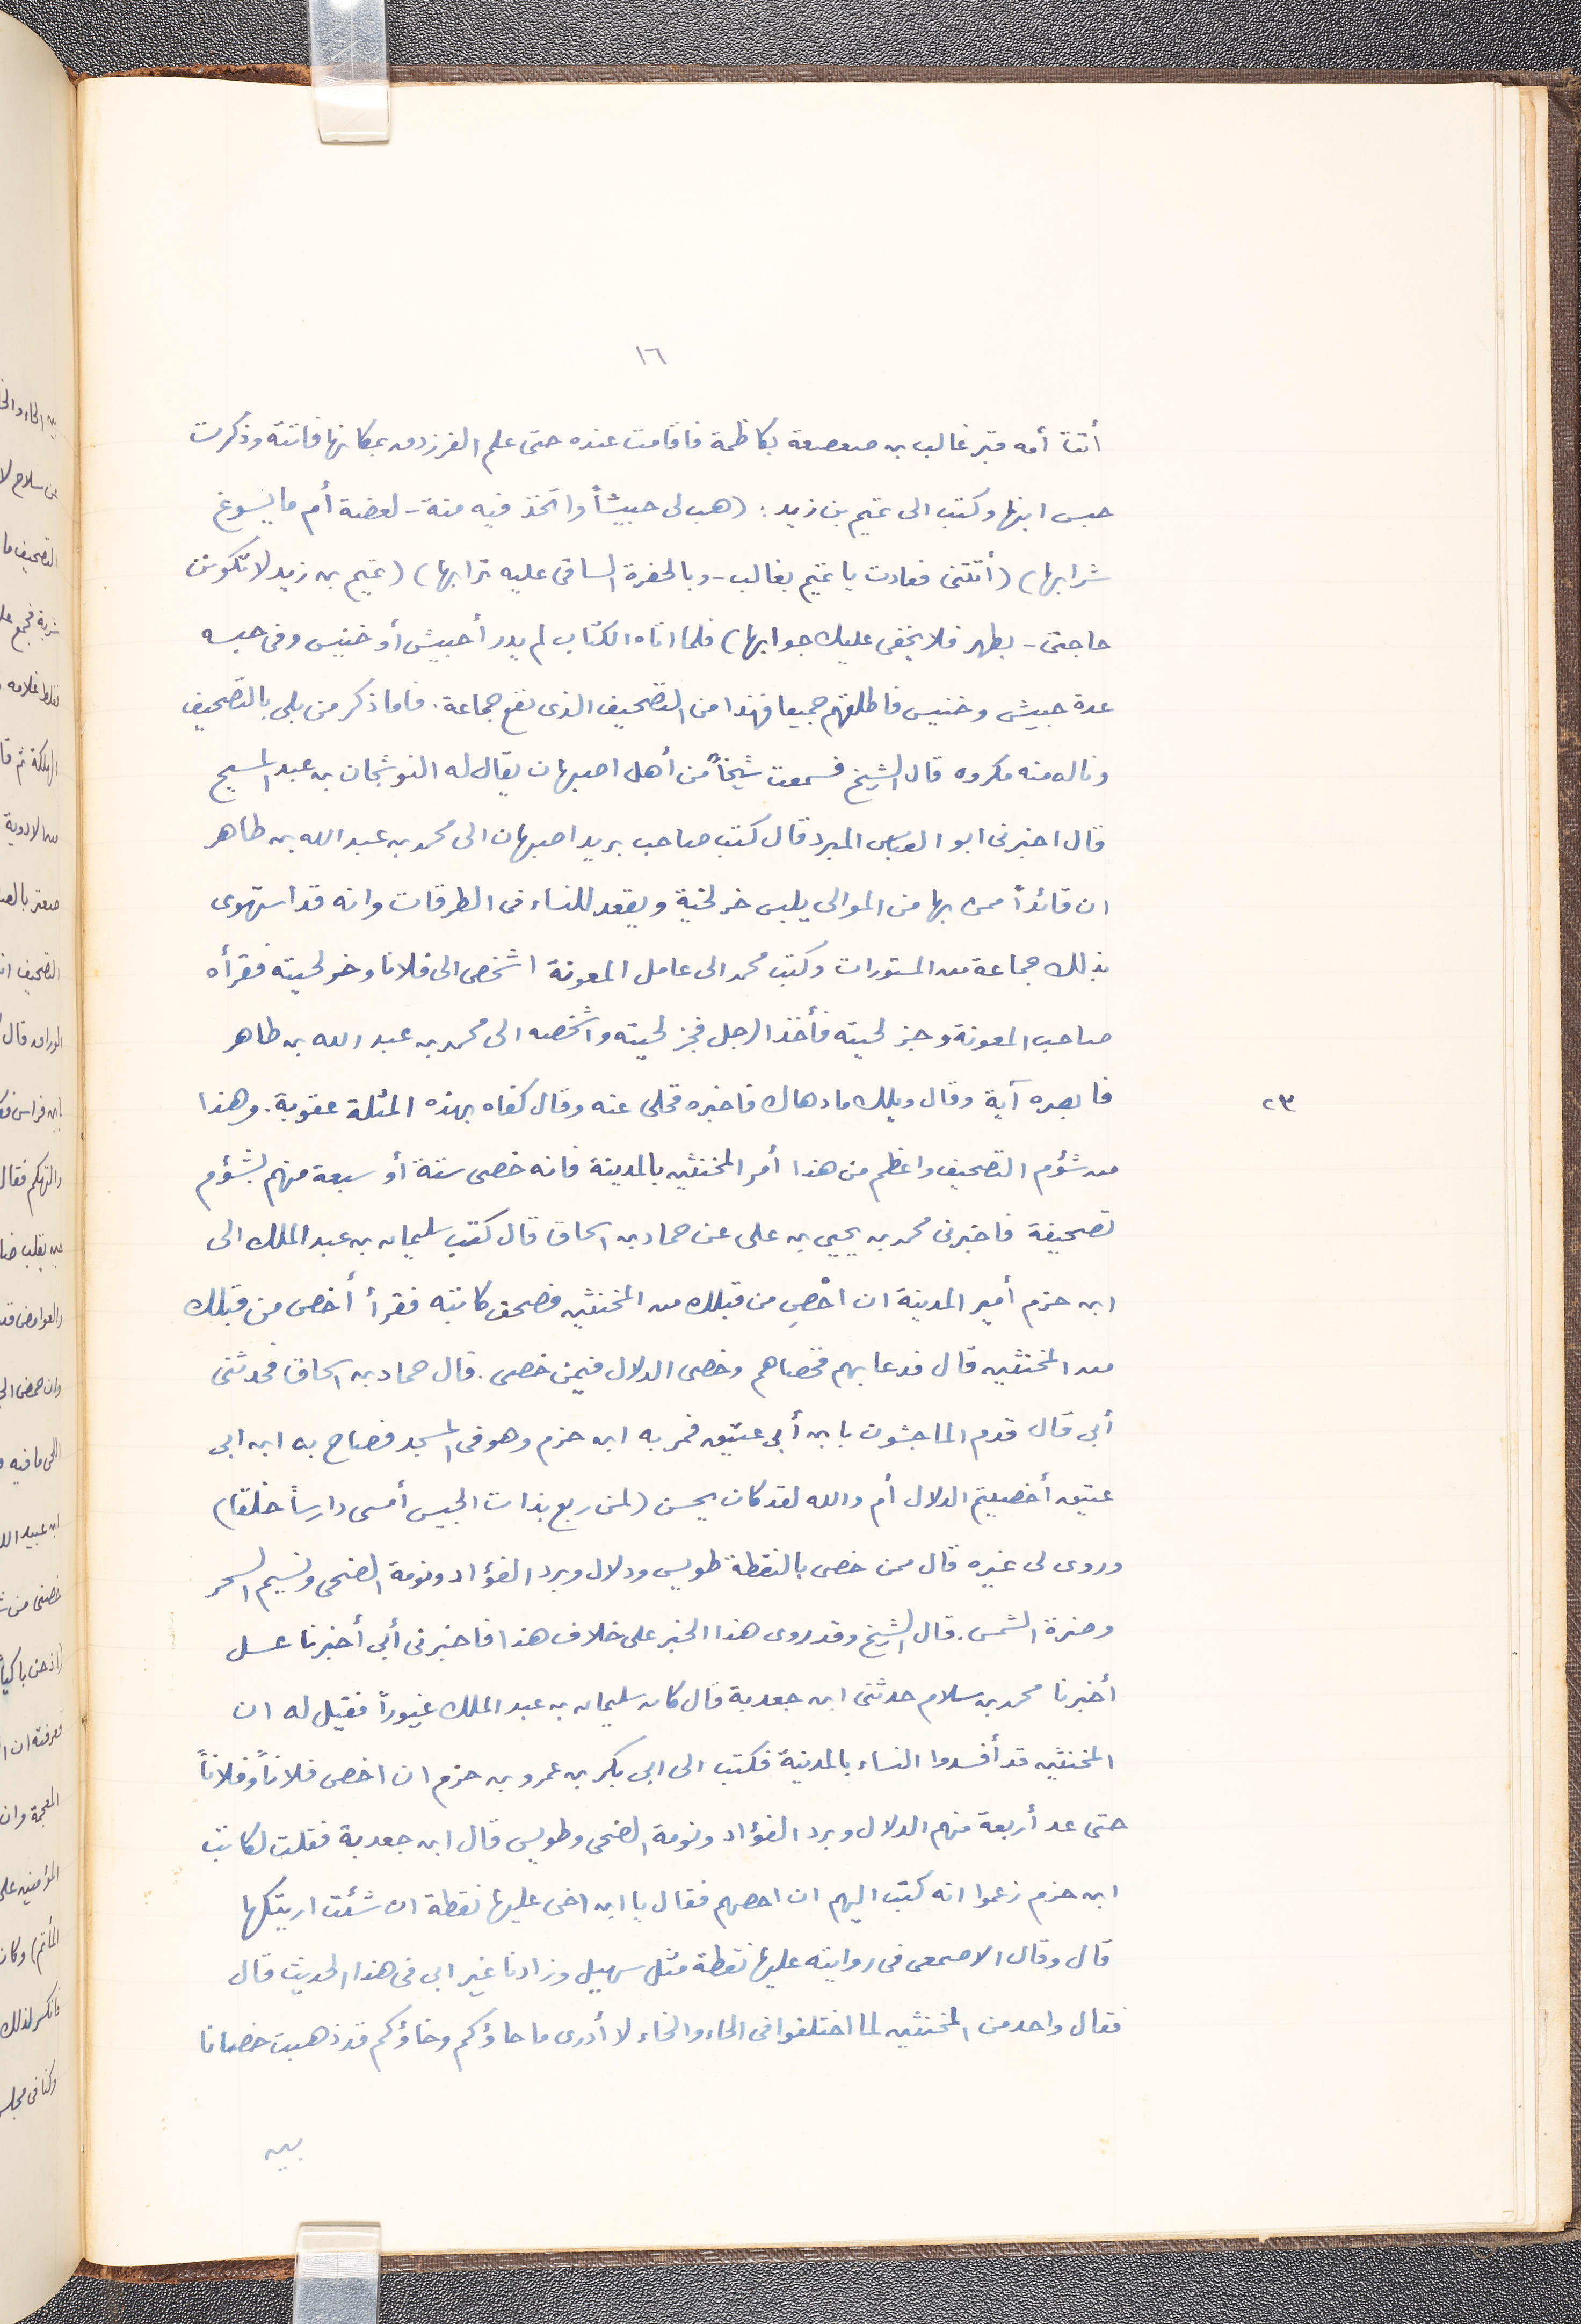 ١٦
أتتا أمه قبر غالب بن صعصعة بكاظمة فاقامت عنده حتى علم الفرزدق بمكانها فاتته وذكرت
حبس ابنها وكتب الى تميم بن زيد : (هب لى حبيشاً واتخذ فيه منة - لغضة أم ما يسوغ
شرابها) (أتتنى فعادت يا تميم بغالب - وبالحفرة السافى عليه ترابها) (تميم بن زيد لا تكونن
حاجتى - بظهر فلا يخفى عليك جوابها) فلما اتاه الكتاب لم يدر أحبيش أو خنيس وفى حبسه
عدة حبيش وخنيس فاطلقهم جميعا فهذا من التصحيف الذى نفع جماعة . فاما ذكر من بلى بالتصحيف
وناله منه مكروه قال الشيخ فسمعت شيخاً من أهل اصبهان يقال له النوشجان بن عبد المسيح
قال اخبرنى ابو العباس المبرد قال كتب صاحب بريد اصبهان الى محمد بن عبد الله بن طاهر
ان قائداً ممن بها من الموالى يلبس خرلخية ويقعد للنساء فى الطرقات وانه قد استهوى
بذلك جماعة من المستورات وكتب محمد الى عامل المعونة اشخص الى فلانا وخرلحيته فقرأه
صاحب المعونة وجز لحيته فأخذ الرجل فجز لحيته واشخصه الى محمد بن عبد الله بن طاهر
فابصره آية وقال ويلك ما دهاك فاخبره فخلى عنه وقال كفاه بهذه المثلة عقوبة . وهذا
٢٣
من شؤم التصحيف واعظم من هذا أمر المخنثين بالمدينة فانه خصى ستة أو سبعة منهم بشؤم
تصحيفة فاخبرنى محمد بن يحيى بن على عن حماد بن اسحاق قال كتب سليمان بن عبد الملك الى
ابن حزم أمير المدينة ان احْصِ من قبلك من المخنثين فصحف كاتبه فقرأ أخص من قبلك
من المخنثين قال فدعا بهم فخصاهم وخصى الدلال فيمن خصى . قال حماد بن اسحاق فحدثنى
أبى قال قدم الماجشون بابن أبى عتيق فمر به ابن حزم وهو فى المسجد فصاح به ابن ابى
عتيق أخصيتم الدلال أم والله لقد كان يحسن (لمن ربع بذات الجيس أمسى دارساً خلقا)
وروى لى غيره قال ممن خصى بالنقطة طويس ودلال وبرد الفؤاد ونومة الضحى ونسيم السحر
وضرة الشمس . قال الشيخ وقد روى هذا الخبر على خلاف هذا فاخبرنى أبى أخبرنا عسل
أخبرنا محمد بن سلام حدثنى ابن جعدبة قال كان سليمان بن عبد الملك غيوراً فقيل له ان
المخنثين قد أفسدوا النساء بالمدينة فكتب الى ابى بكر بن عمرو بن حزم ان اخص فلاناً وفلاناً
حتى عد أربعة منهم الدلال وبرد الفؤاد ونومة الضحى وطويس قال ابن جعدبة فقلت لكاتب
ابن حزم زعموا انه كتب اليهم ان احصهم فقال يا ابن اخى عليها نقطة ان شئت اريتكها
قال وقال الاصمعى فى روايته عليها نقطة مثل سهيل وزادنا غير ابى فى هذا الحديث قال
فقال واحد من المخنثين لما اختلفوا فى الحاء والخاء لا أدرى ما حاؤكم وخاؤكم قد ذهبت خصانا
بين